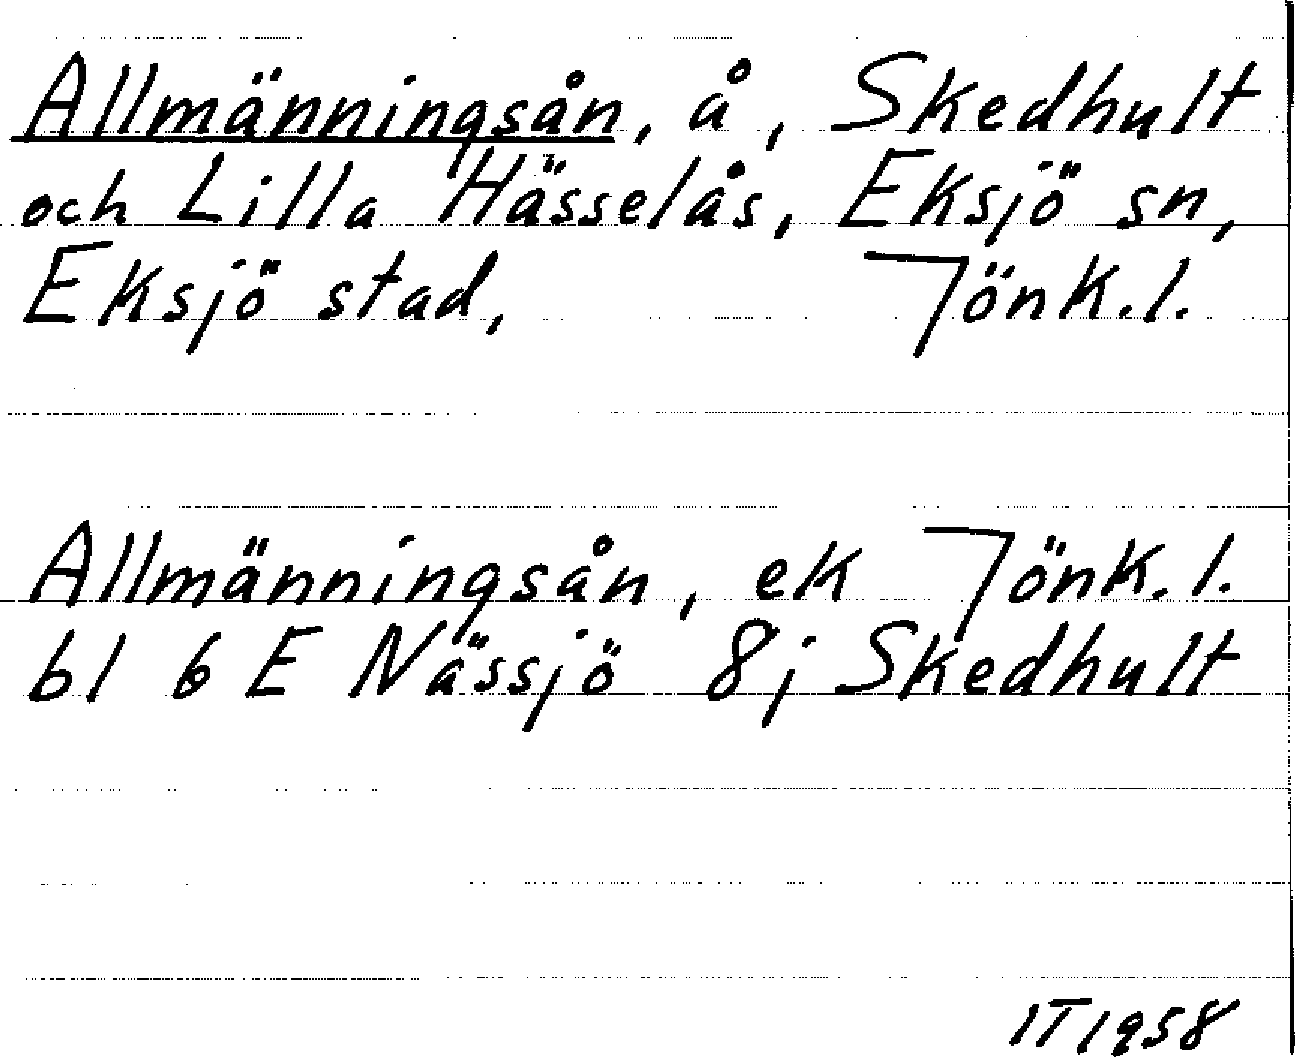 Allmänningsån, å, Skedhult
och Lilla Hässelås, Eksjö sn,
Eksjö stad, Jönk.l.
Allmänningsån, ek Jönk.l.
bl 6 E Nässjö 8j Skedhult
IT 1958